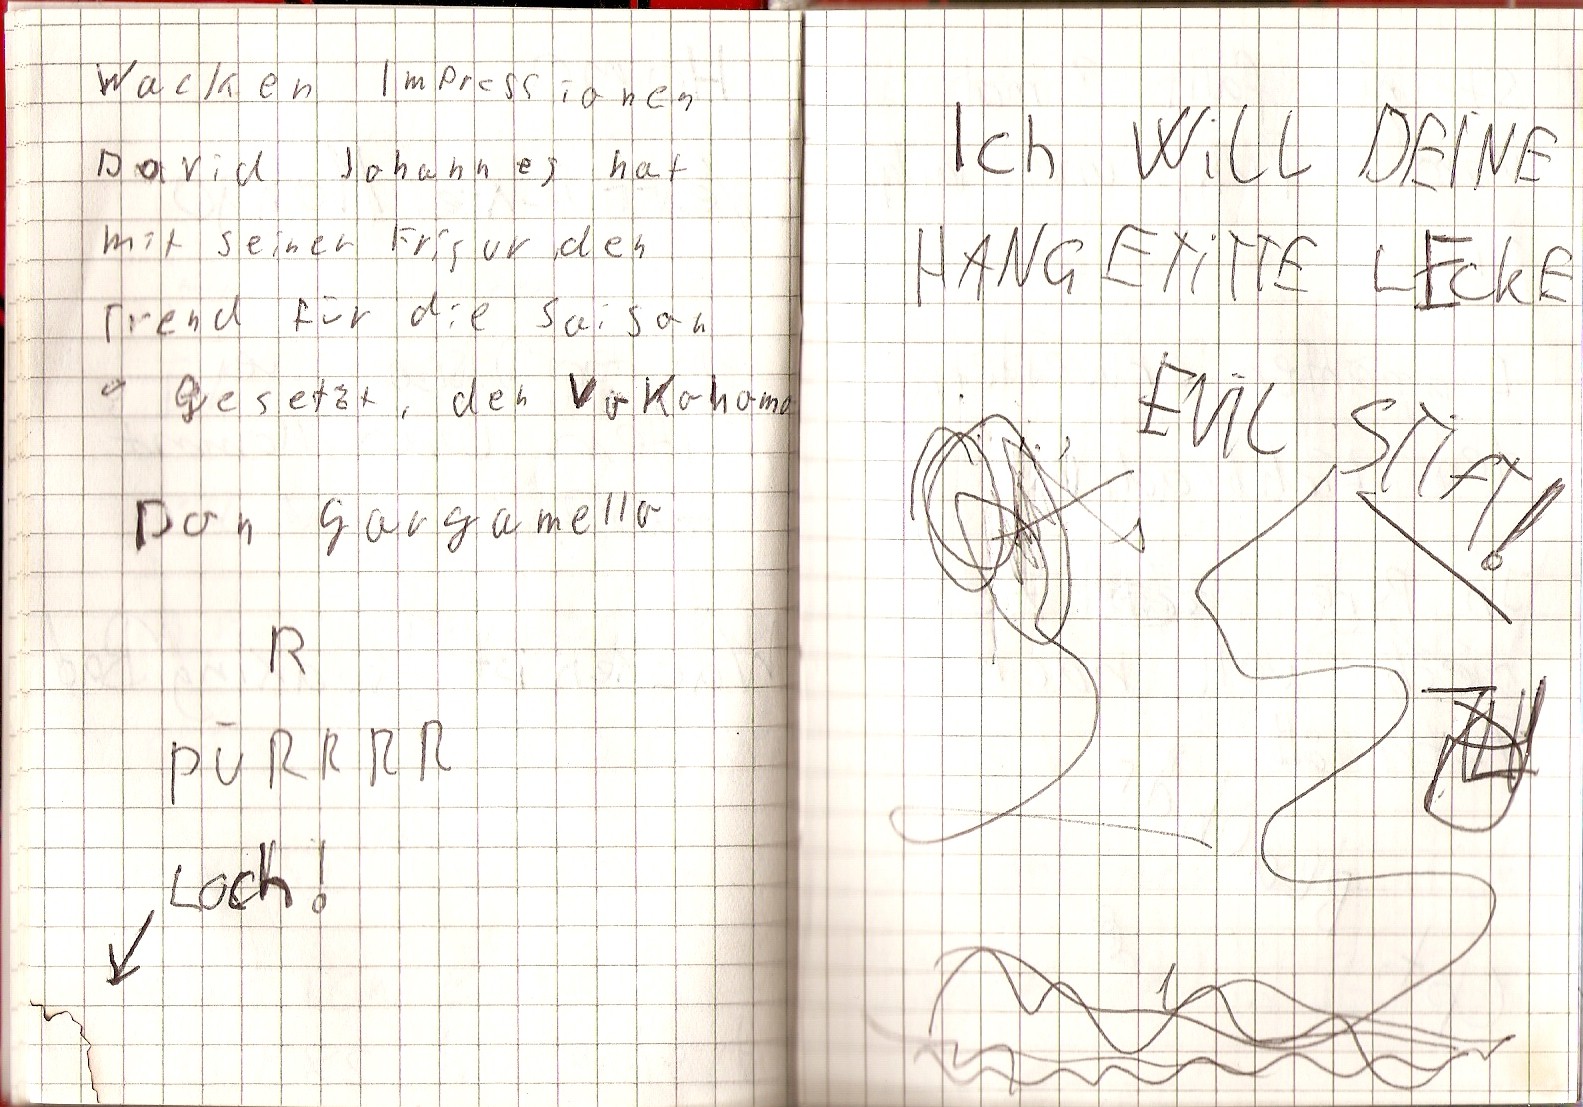 Wacken Impressionen
David Johannes hat
mit seiner Frisur den
Trend für die Saison
gesetzt, den VoKohama
Don Gargamello
R
PÜRRRR
Loch!
Ich WiLL DEiNE
HANGETiTTE LEckE
EViL STifT!